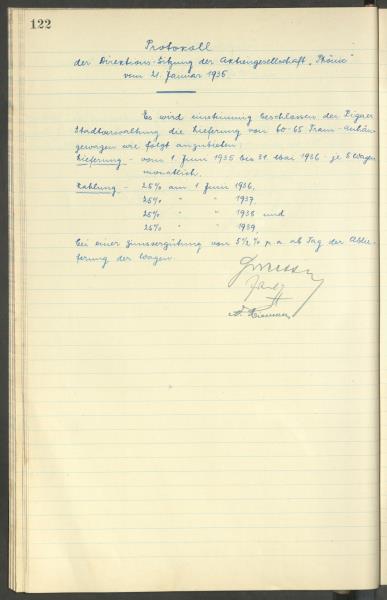 122
Protokoll
der Direktions-Sitzung der Aktiengesellschaft "Phönix"
vom 21. Januar 1935.
Es wird einstimmig beschlossen der Rigaer
Stadtverwaltung die Lieferung von 60-65 Tram-Anhän-
gewagen wie folgt anzubieten:
Lieferung - vom 1. Juni 1935 bis 31 Mai 1936 - je 5 Wagen
monatlich.
Zahlung - 25% am 1 Juni 1936,
25% " " 1937,
25% " " 1938 und
25% " " 1939,
bei einer Zinsvergütung von 5½% p.a. ab Tag der Ablie-
ferung der Wagen.